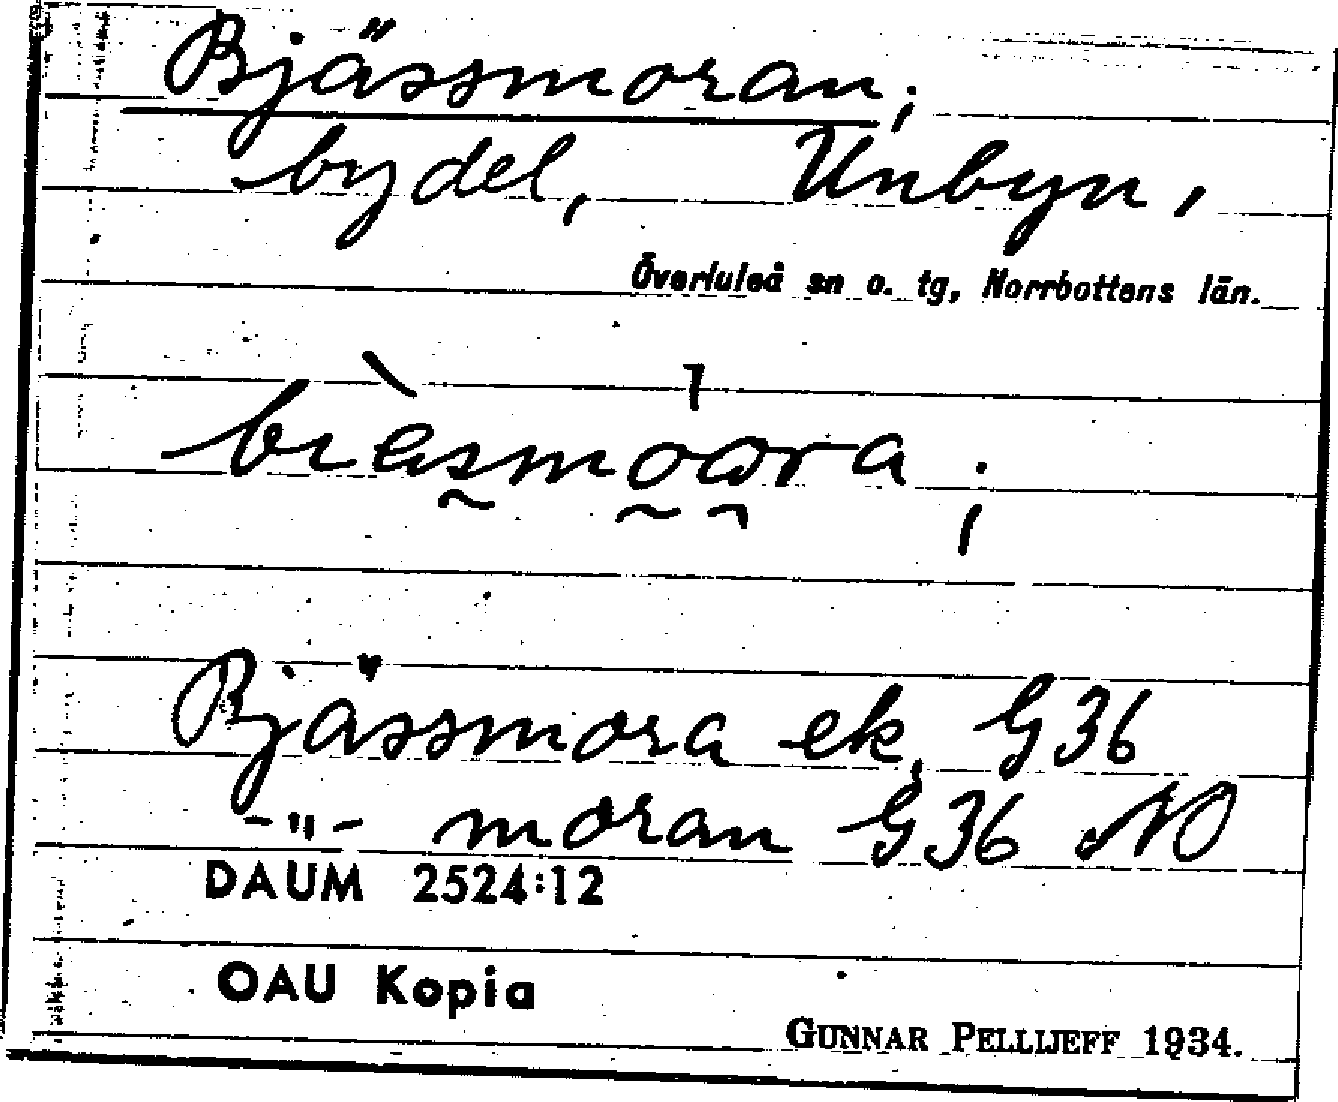 Bjässmoran;
bydel, Unbyn,
Överluleå sn o. tg, Norrbottens län.
Bjässmora ek. G36
-"- moran G36 NO
DAUM 2524:12
OAU Kopia
GUNNAR PELLIJEFF 1934.